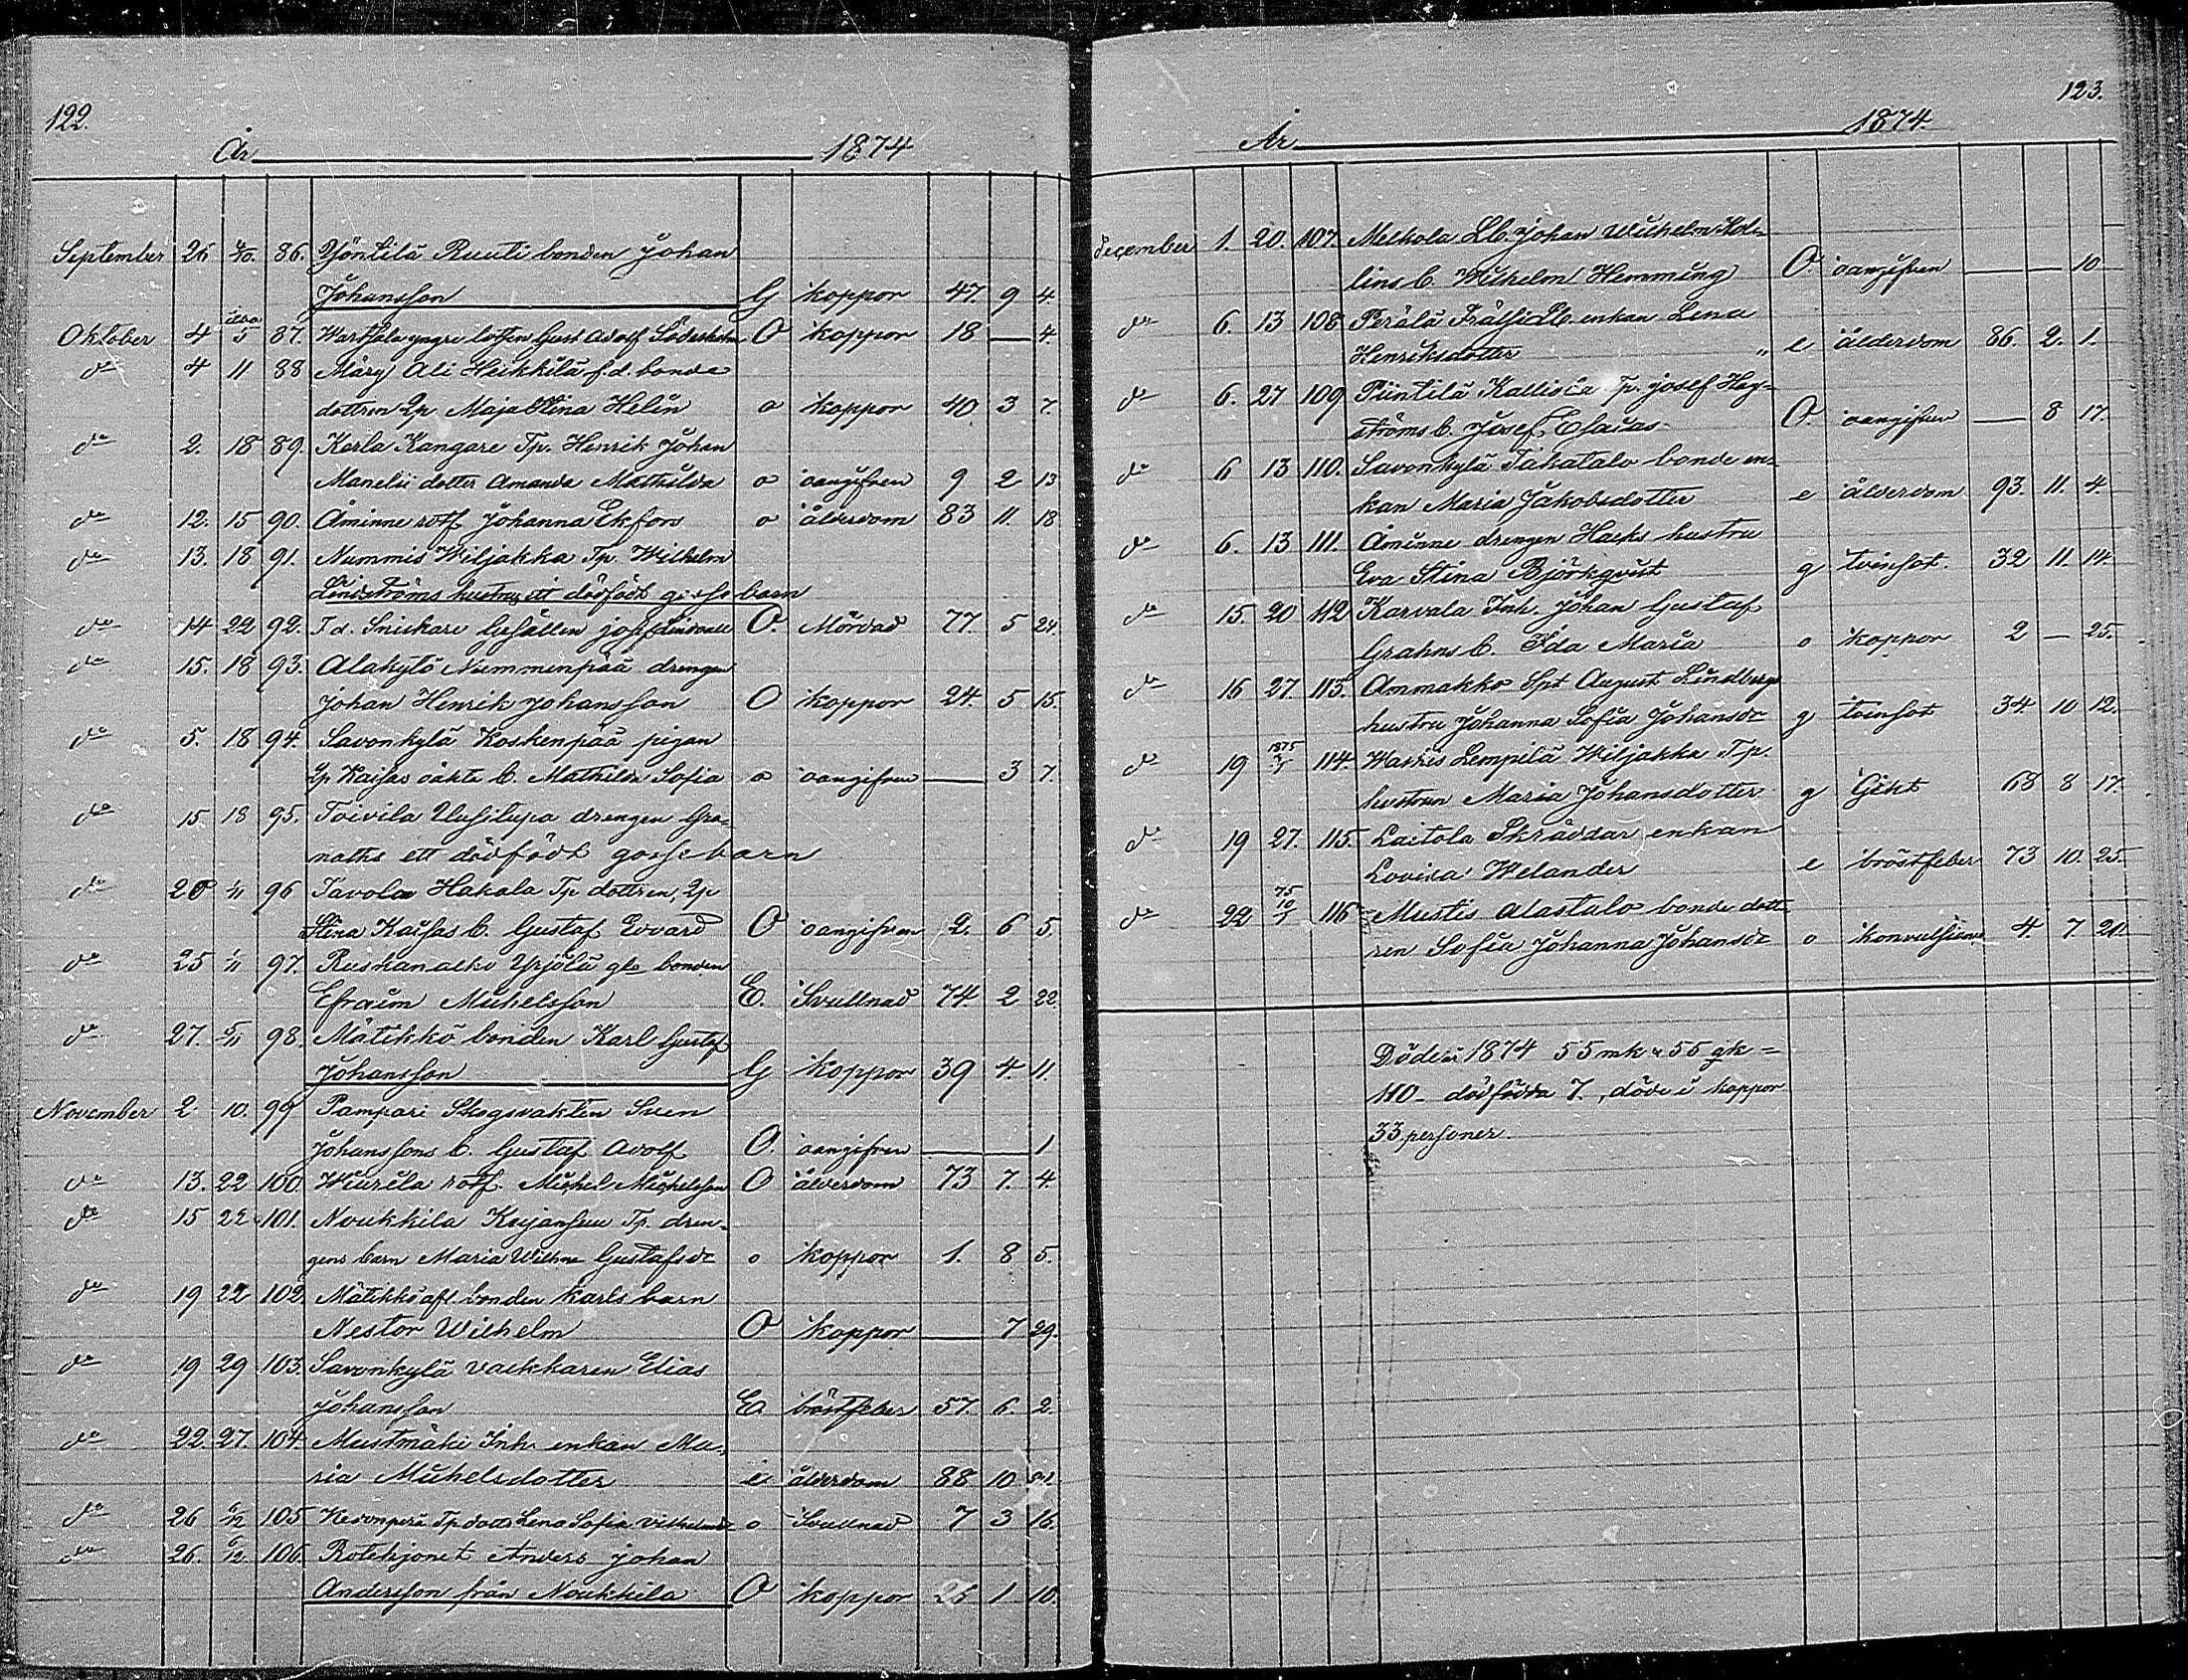 122.
År 1874
September 26 4/10. 86. Yöntilä Ruuti bonden Johan
Johansson G koppor 47 9 4
Oktober 4 5 87. yngre lotsen Gust Adolf Söderholm O koppor 18 — 4.
do 4 11 88 Märy Ali Heikkilä f.d. bonde
dottren Qp Maja Stina Helin o koppor 40 3 7.
do 2. 18 89. Karla Kangare Tp. Henrik Johan
Manelii dotter Amanda Mathilda o oangifven 9 2 13
do 12. 15 90. Åminne rotf Johanna Ekfors o ålderdom 83 11. 18
do 13. 18 91. Nummis Wiljakka Tp. Wilhelm
Lindströms hustrus ett dödfödt gossebarn
do 14 22 92. F.d. Snickare Gesällen Josef Lindvall O. Mördad 77. 5 24.
do 15. 18 93. Alakylö Nummenpää drengen
Johan Henrik Johansson O koppor 24. 5 15.
do 5. 18 94. Savonkylä Koskenpää pigan
Qp Kaisas oäkta b. Mathilda Sofia o oangifven — 3 7.
do 15 18 95. Toivila Uusitupa drengen Gra-
naths ett dödfödt gossebarn
do 20 1/11 96 Tavola Hakala Tp dottren, Qp
Stina Kaisas b. Gustaf Evvard O oangifven 2. 6 5.
do 25 1/11 97. Ruskanalko Yrjölä gle bonden
Efraim Michelsson E. Svullnad 74 2 22.
do 27. 5/11 98. Mätikkö bonden Karl Gustaf
Johansson G koppor 39 4. 11.
November 2. 10. 99 Pampari Skogsvakten Sven
Johanssons b. Gustaf Adolf O. oangifven — 1
do 13. 22 100. Wiurila rotf. Michel Michelsson O ålderdom 73 7. 4.
do 15 22 101. Noukkila Kaijansuu Tp. dren-
gens barn Maria Wilhna Gustafsdr o koppor 1. 8 5.
do 19 22 102. Mätikkö afl. bonden Karls barn
Nestor Wilhelm O koppor — 7 29.
do 19 29 103. Savonkylä vackkaren Elias
Johansson E. bröstfeber 57. 6. 2.
do 22. 27. 104. Mustmäki Inh. enkan Ma-
ria Michelsdotter e ålderdom 88 10
do 26 6/12 105 Kedonperä Tp dottr Lena Sofia Vilhelmsdr o Svullnad 7 3 16.
do 26. 6/12. 106. Rotehjonet Anders Johan
Andersson från Noukkila O koppor 26 1 10.
123.
År 1874.
December 1. 20. 107. Melkola Lb. Johan Wilhelm Hol-
lins b. Wilhelm Hemming O. oangifven — — 10
do 6. 13 108 Perälä Frälse Lb. enkan Lena
Henriksdotter " e ålderdom 86. 2. 1.
do 6. 27 109 Piintilä Kallisia Tp. Josef Hag-
ströms b. Josef Esaias O. oangifven — 8 17.
do 6 13 110. Savonkylä Takatalo bonde en-
kan Maria Jakobsdotter e ålderdom 93. 11. 4.
do 6. 13 111. Åminne drengen Hacks hustru
Eva Stina Björkqvist g tvinsot. 32 11. 14.
do 15. 20 112 Karvala Inh. Johan Gustaf
Grahns b. Ida Maria o koppor 2 — 25.
do 16 27. 113. Ammakko Spt August Lindbergs
hustru Johanna Sofia Johansdr g tvinsot 34. 10 12.
do 19 1875 3/1 114. Waskis Lempilä Wiljakka Tp.
hustrun Maria Johansdotter g Gikt 68 8 17.
do 19 27. 115. Laitola Skräddar enkan
Lovisa Welander e bröstfeber 73 10. 25.
do 22 75 10/1 116 Mustis Alastalo bonde dott-
ren Sofia Johanna Johansdr o konvulsioner 4. 7 21.
Döde i 1874 55 mk & 55 qk =
110 - dödfödda 7., döde i koppor
33 personer.